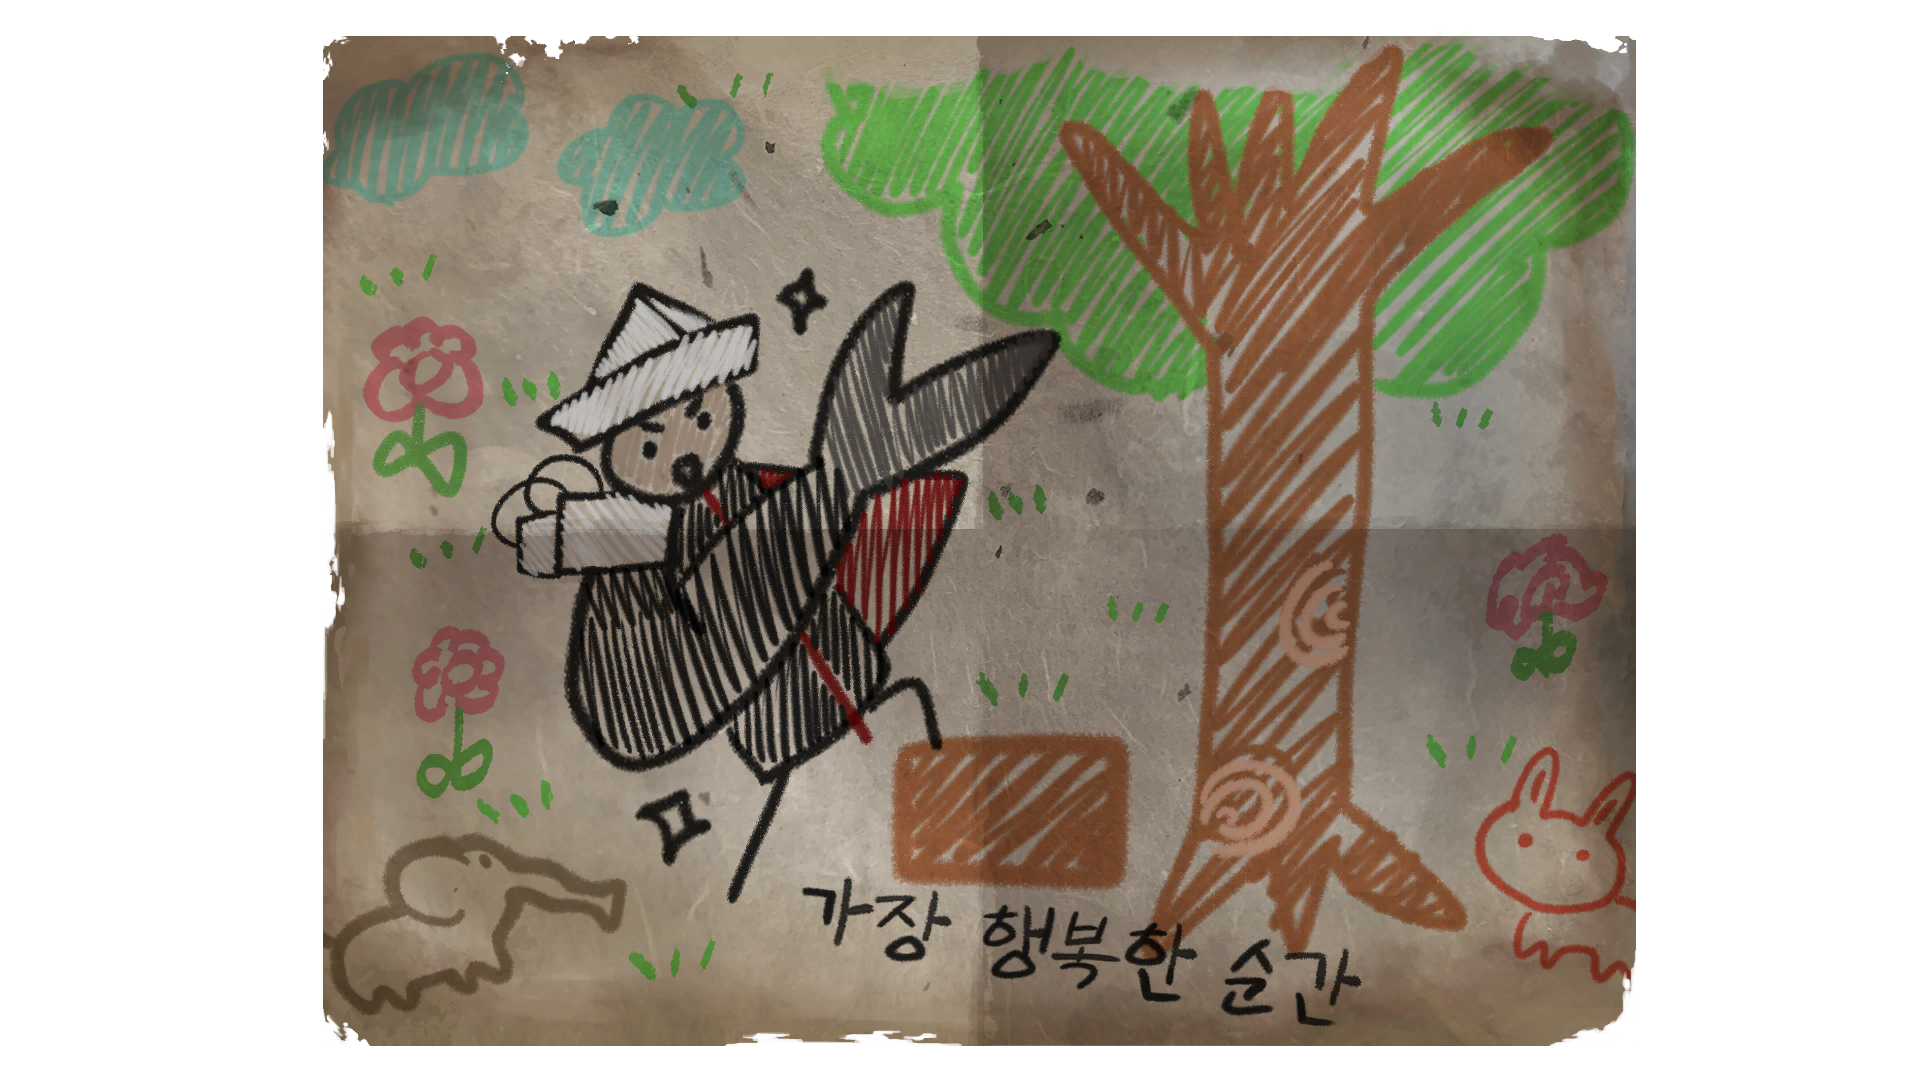 가장 행복한 순간